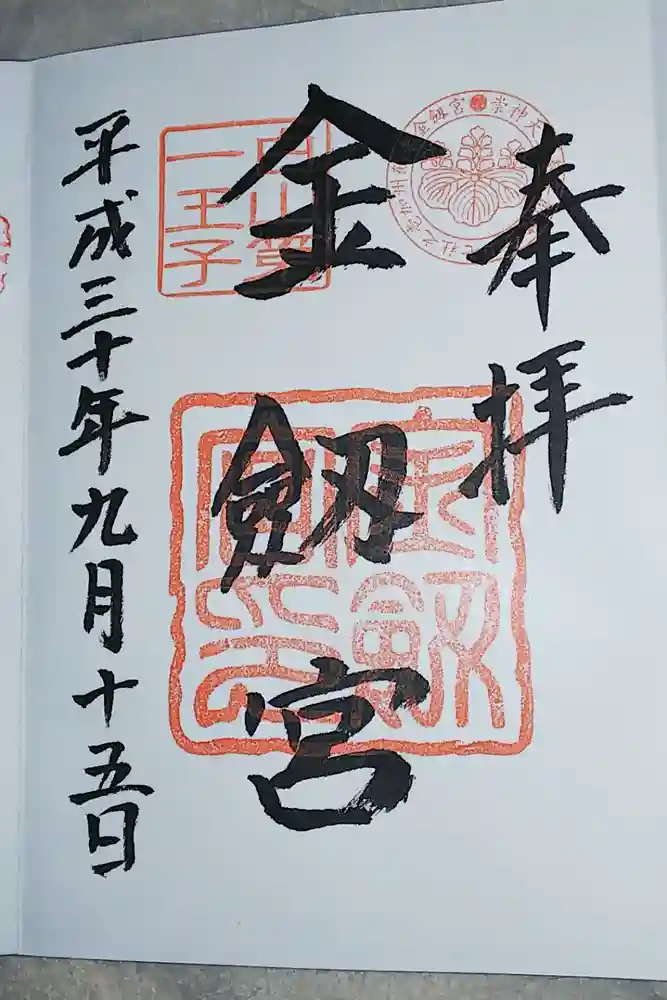 奉拝
金劔宮
平成三十年九月十五日
白山第
一王子
金劔宮印